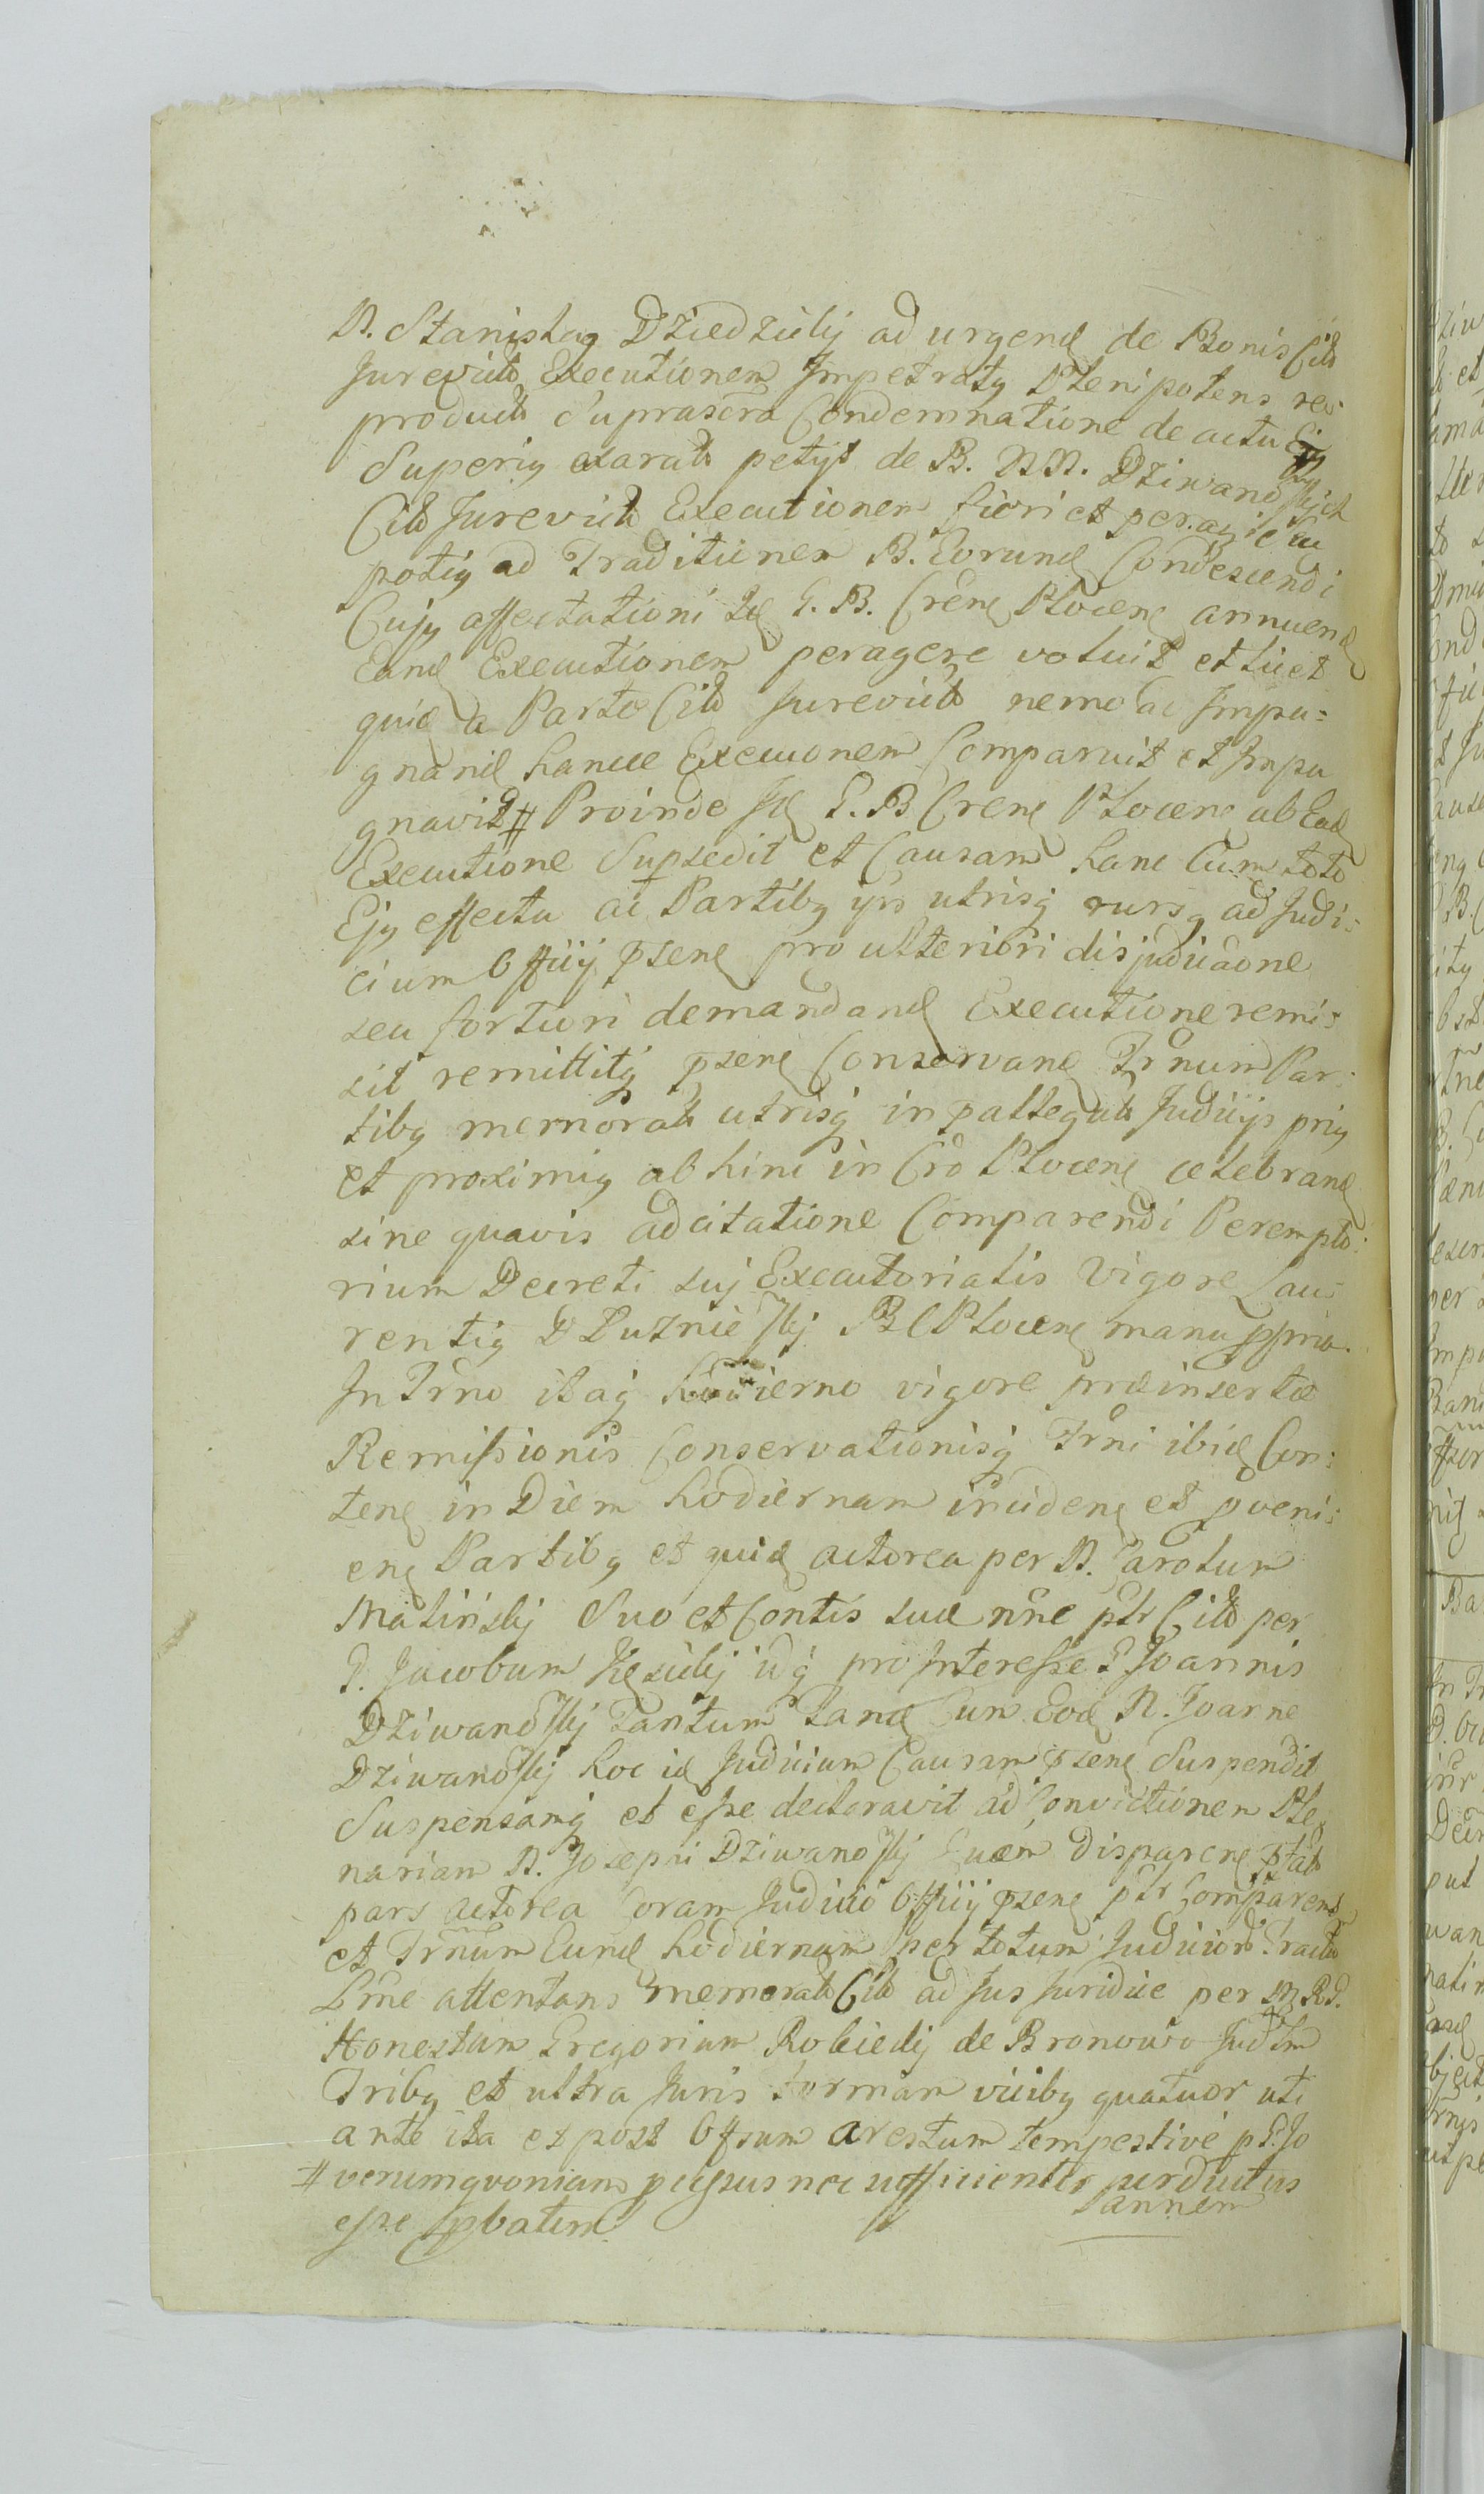 N. Stanislaq Dziedzicki ad urgend de Bonis Cito
Jurevicto Executionem Impetratq Plenipotens re
producto Suprascra Condemnatione de actu Ejq
Superiq exarato petijt de B. NN. Dziwanoskich
Cito Jurevicto Executionem fieri et peragi seu
potiq ad Traditionem B. Eorund Condescendi
Cujq affectationi Id G. B. Crene Plocene annuend
Eand Executionem peragere voluit et licet
quid a Parte Cito Jurevicto nemo ad Impu=
gnand hancce Execuonem Comparuit et Impu
gnavit # Proinde Id G. B Crene Plocene ab Ead
Executione Supsedit et Causam hanc Cum toto
Ejq effectu ac Partibq ijs utrisq rursq ad Judi:
cium Officij psene pro ulteriori disjudicaone
seu fortiori demandand Executione remi:
sit remittitq psene Conservane Trnum Par:
tibq memorato utrisq in pallegato Judicijs priq
et proximiq abhinc in Cro Plocene celebrand
sine quavis adcitatione Comparendi Perempto:
rium Decreti suj Executorialis Vigore Lau
rentiq DŁuzniewskj B C Plocene manu ppria.
In Trno itaq hodierno vigore præinsertæ
Remissionis Conservationisq Trni ibid Con:
tene in Diem hodiernam incidene et pveni:
ene Partibq et quid actorea per N. Carolum
Malinskj Suo et Contis suæ nne ptr Cito per
G. Jacobum Kęsickj idq pro Interesse G Joannis
Dziwanoskj Tantum Tand Cum Eod N. Joanne
Dziwanoskj hoc id Judicium Causam psene Suspendit
Suspensamq et esse declaravit ad Convictionem Ple
nariam N. Josephi Dziwanoskj Quem disparene pfat
pars actorea Coram Judicio Officij psene ptr Comparens
et Trnum Eund hodiernum per totum Judicior Tractu
Lrme attentans memorato Cito ad Jus Juridice per M RP.
Honestum Gregorium Robieckj de Bronowo Judlm
Tribq et ultra Juris formam vicibq quatuor uti
ante ita et post Offsum arestum tempestive p G. Jo
# verumqvoniam sufficienter perductus
esse pbatim
annem